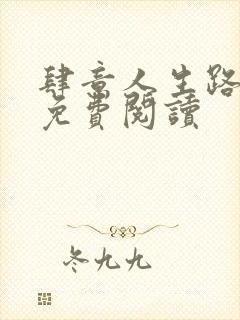 肆意人生路
免費閱讀
冬九九